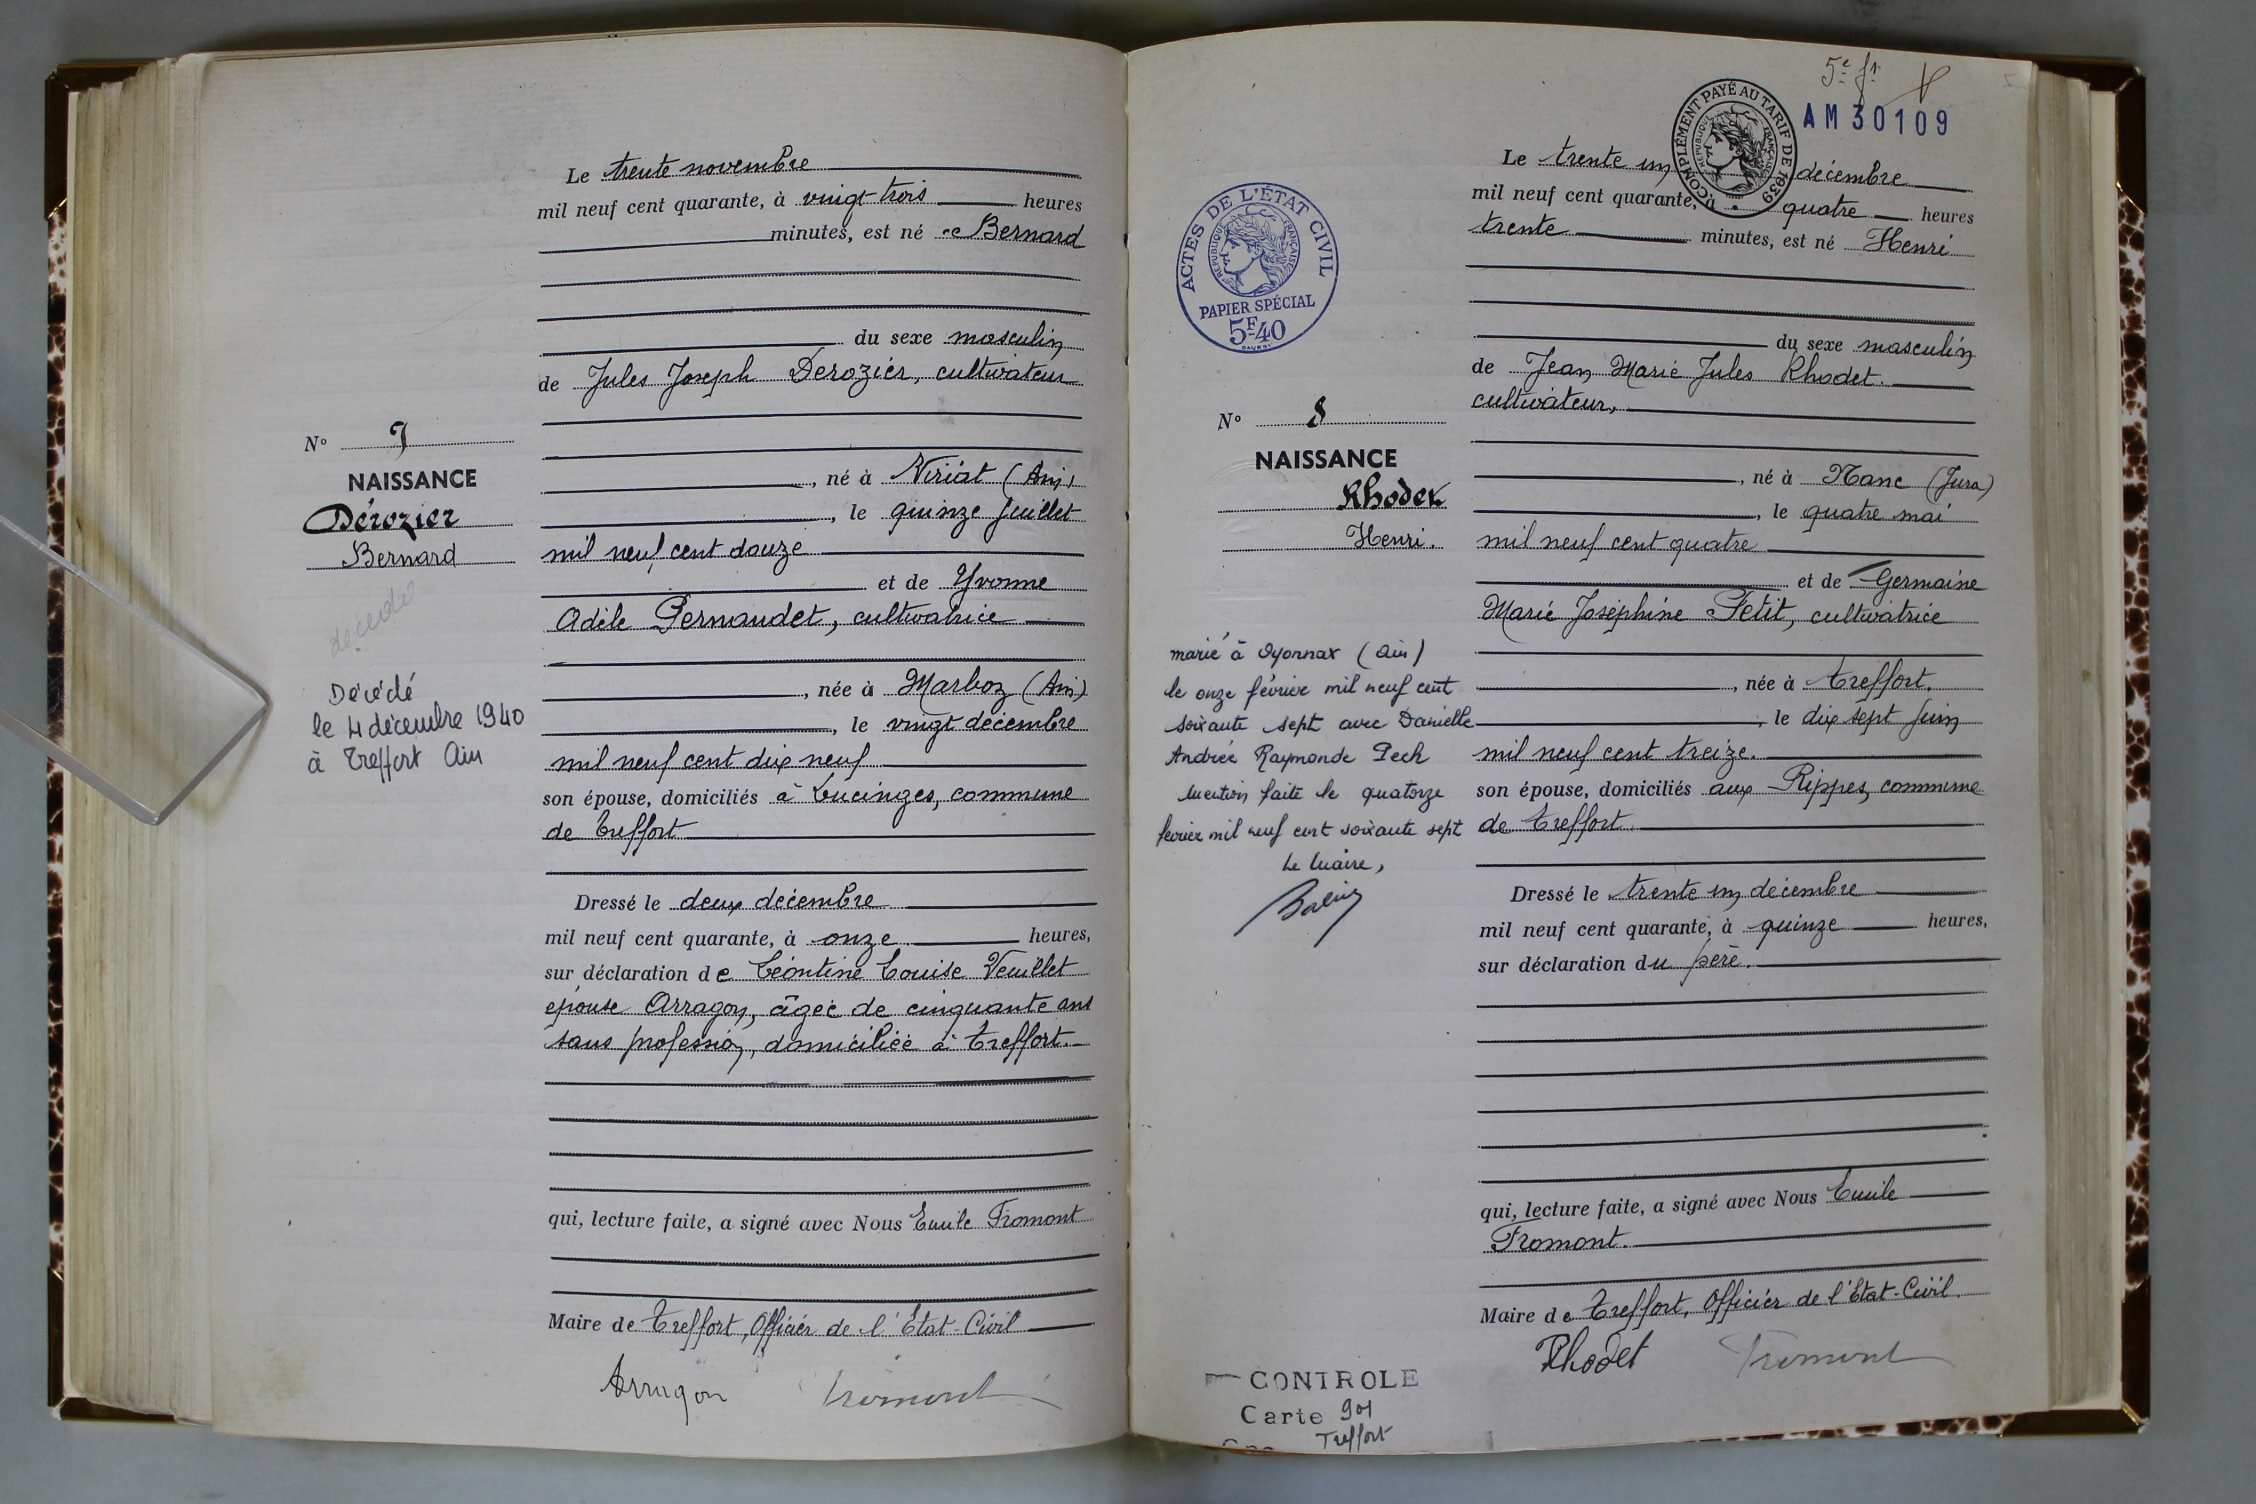 Le trente novembre
mil neuf cent quarante, à vingt trois heures
minutes, est né Bernard
du sexe masculin
de Jules Joseph Derozier, cultivateur
N° 7
NAISSANCE
Dérozier
Bernard
décédé
Décédé
le 4 décembre 1940
à Treffort Ain
, né à Viriat (Ain)
, le quinze juillet
mil neuf cent douze
et de Yvonne
Adèle Pernaudet, cultivatrice
, née à Marboz (Ain)
, le vingt décembre
mil neuf cent dix neuf
son épouse, domiciliés à Lucinges, commune
de Treffort
Dressé le deux décembre
mil neuf cent quarante, à onze heures,
sur déclaration de Léontine Louise Veuillet
épouse Arragon, âgée de cinquante ans
sans profession, domiciliée à Treffort.
qui, lecture faite, a signé avec Nous Emile Fromont
Maire de Treffort, Officier de l'Etat-Civil
Arragon Fromont
5e ft
AM 30109
COMPLÉMENT PAYÉ AU TARIF DE 1939
RÉPUBLIQUE FRANÇAISE
ACTES DE L'ÉTAT CIVIL
RÉPUBLIQUE FRANÇAISE
PAPIER SPÉCIAL
5F40
Le trente un décembre
mil neuf cent quarante, à quatre heures
trente minutes, est né Henri
du sexe masculin
de Jean Marie Jules Rhodet.
cultivateur,
N° 8
NAISSANCE
Rhodet
Henri.
marié à Oyonnax (Ain)
le onze février mil neuf cent
soixante sept avec Danielle
Andrée Raymonde Pech
Mention faite le quatorze
février mil neuf cent soixante sept
Le Maire,
, né à Nanc (Jura)
, le quatre mai
mil neuf cent quatre
et de Germaine
Marie Joséphine Petit, cultivatrice
, née à Treffort.
, le dix sept juin
mil neuf cent treize.
son épouse, domiciliés aux Rippes, commune
de Treffort.
Dressé le trente un décembre
mil neuf cent quarante, à quinze heures,
sur déclaration du père.
qui, lecture faite, a signé avec Nous Emile
Fromont.
Maire de Treffort, Officier de l'Etat-Civil.
Rhodet Fromont
CONTROLE
Carte 901
Treffort